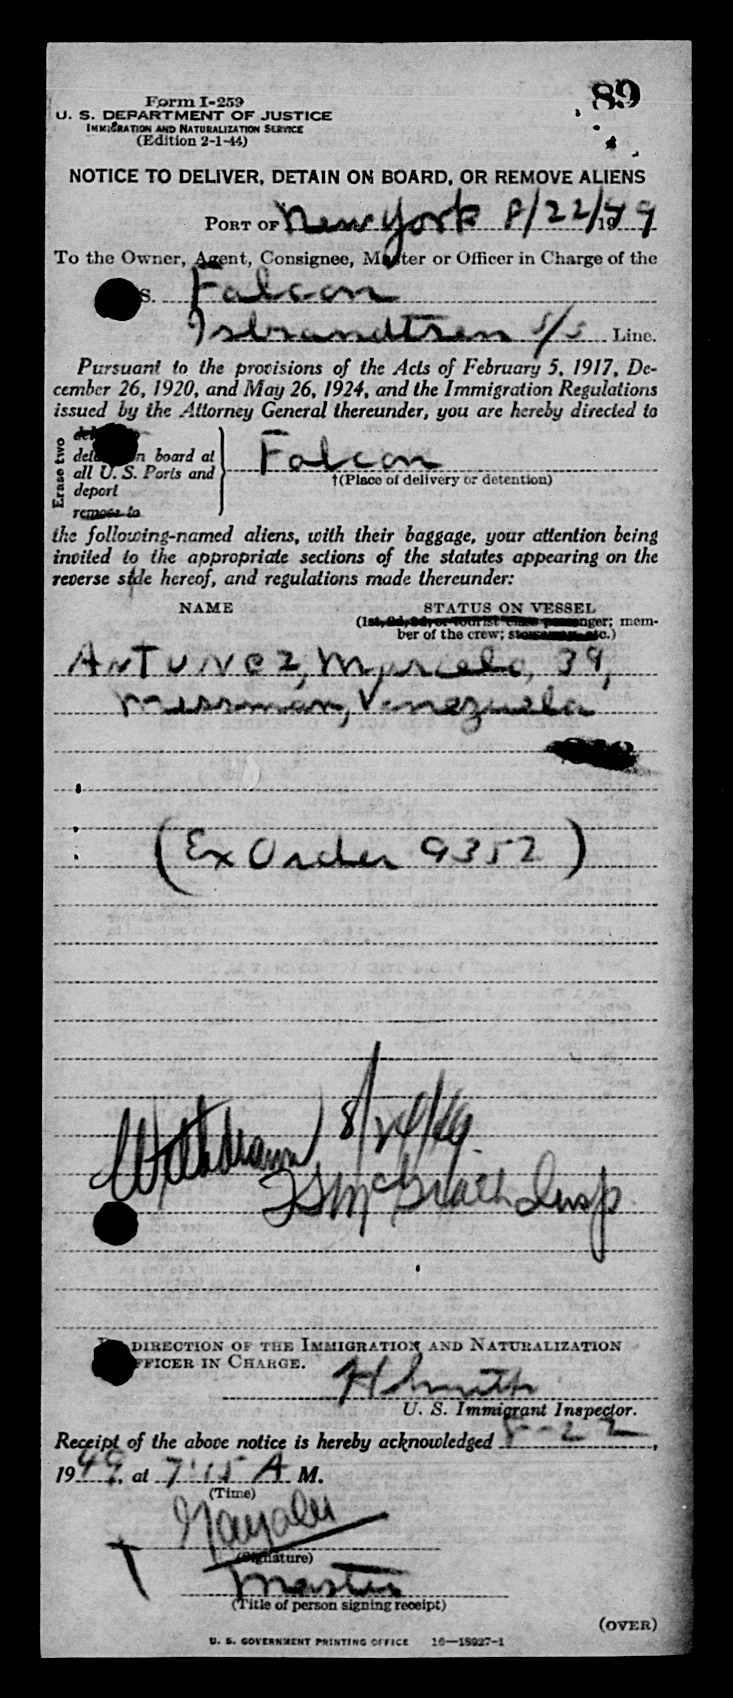 89
Form I-259
U. S. DEPARTMENT OF JUSTICE
IMMIGRATION AND NATURALIZATION SERVICE
(Edition 2-1-44)
NOTICE TO DELIVER, DETAIN ON BOARD, OR REMOVE ALIENS
PORT OF New York 8/22/1949
To the Owner, Agent, Consignee, Master or Officer in Charge of the
S. Falcon
Isbrandtsen S/S Line.
Pursuant to the provisions of the Acts of February 5, 1917, De-
cember 26, 1920, and May 26, 1924, and the Immigration Regulations
issued by the Attorney General thereunder, you are hereby directed to
Erase two
on board at
all U. S. Ports and
deport
remove to
Falcon
†(Place of delivery or detention)
the following-named aliens, with their baggage, your attention being
invited to the appropriate sections of the statutes appearing on the
reverse side hereof, and regulations made thereunder:
NAME STATUS ON VESSEL
(1st, 2d, 3d, or tourist class passenger; mem-
ber of the crew; stowaway, etc.)
ANTUNEZ, Marcelo, 39,
Messman, Venezuela
(Ex Order 9352)
Withdrawn 8/24/49
McGrath Insp
DIRECTION OF THE IMMIGRATION AND NATURALIZATION
OFFICER IN CHARGE.
H Smith
U. S. Immigrant Inspector.
Receipt of the above notice is hereby acknowledged 8-22,
1949, at 7:15 A M.
(Time)
(Signature)
Master
(Title of person signing receipt)
(OVER)
U. S. GOVERNMENT PRINTING OFFICE 16—18927-1